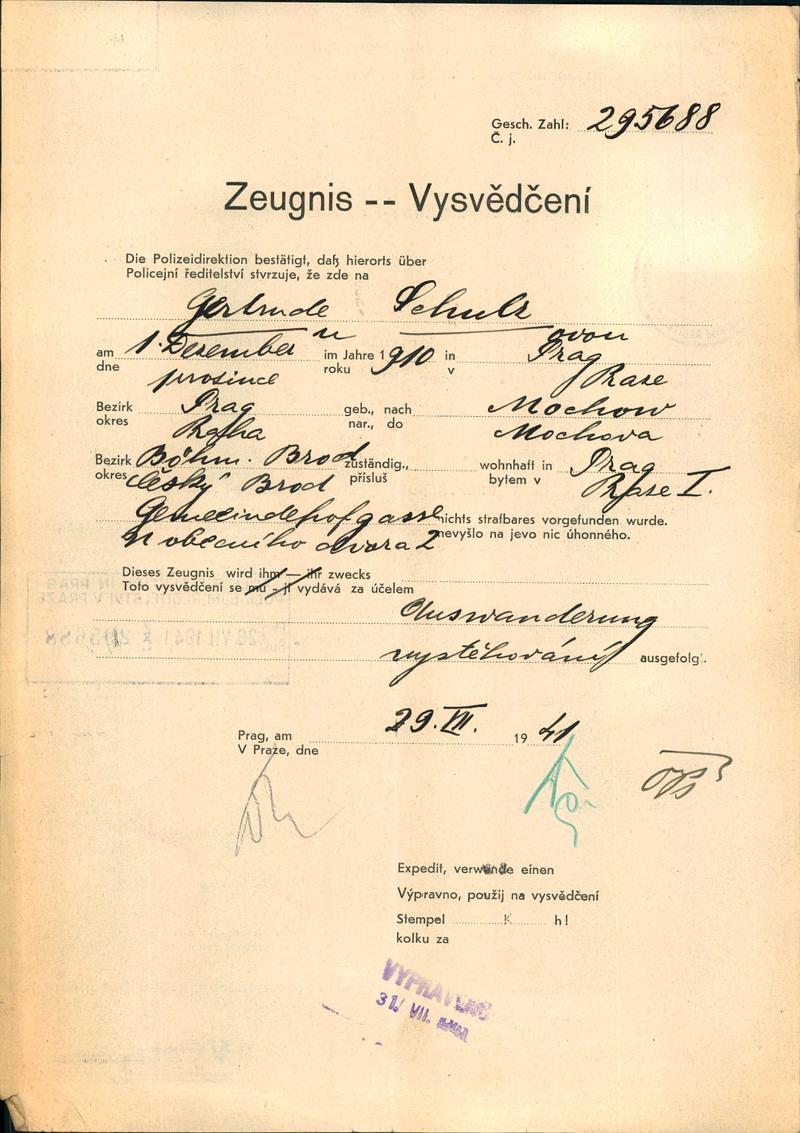 Gesch. Zahl: 295688
Č. j.
Zeugnis -- Vysvědčení
Die Polizeidirektion bestätigt, daß hierorts über
Policejní ředitelství stvrzuje, že zde na
Gertrude Schulz
ovou
am 1. Dezember im Jahre 1910 in Prag
dne prosince roku v Praze
Bezirk Prag geb., nach Mochow
okres Praha nar., do Mochova
Bezirk Böhm. Brod zuständig., wohnhaft in Prag
okres Český Brod přísluš bytem v Praze I.
Gemeindehofgasse nichts strafbares vorgefunden wurde.
U obecního dvora 2 nevyšlo na jevo nic úhonného.
Dieses Zeugnis wird ihm — ihr zwecks
Toto vysvědčení se mu - jí vydává za účelem
Auswanderung
vystěhování ausgefolg.
Prag, am 29. VII. 1941
V Praze, dne
Expedit, verwende einen
Výpravno, použij na vysvědčení
Stempel K h!
kolku za
VYPRAVENO
31. VII. 1941